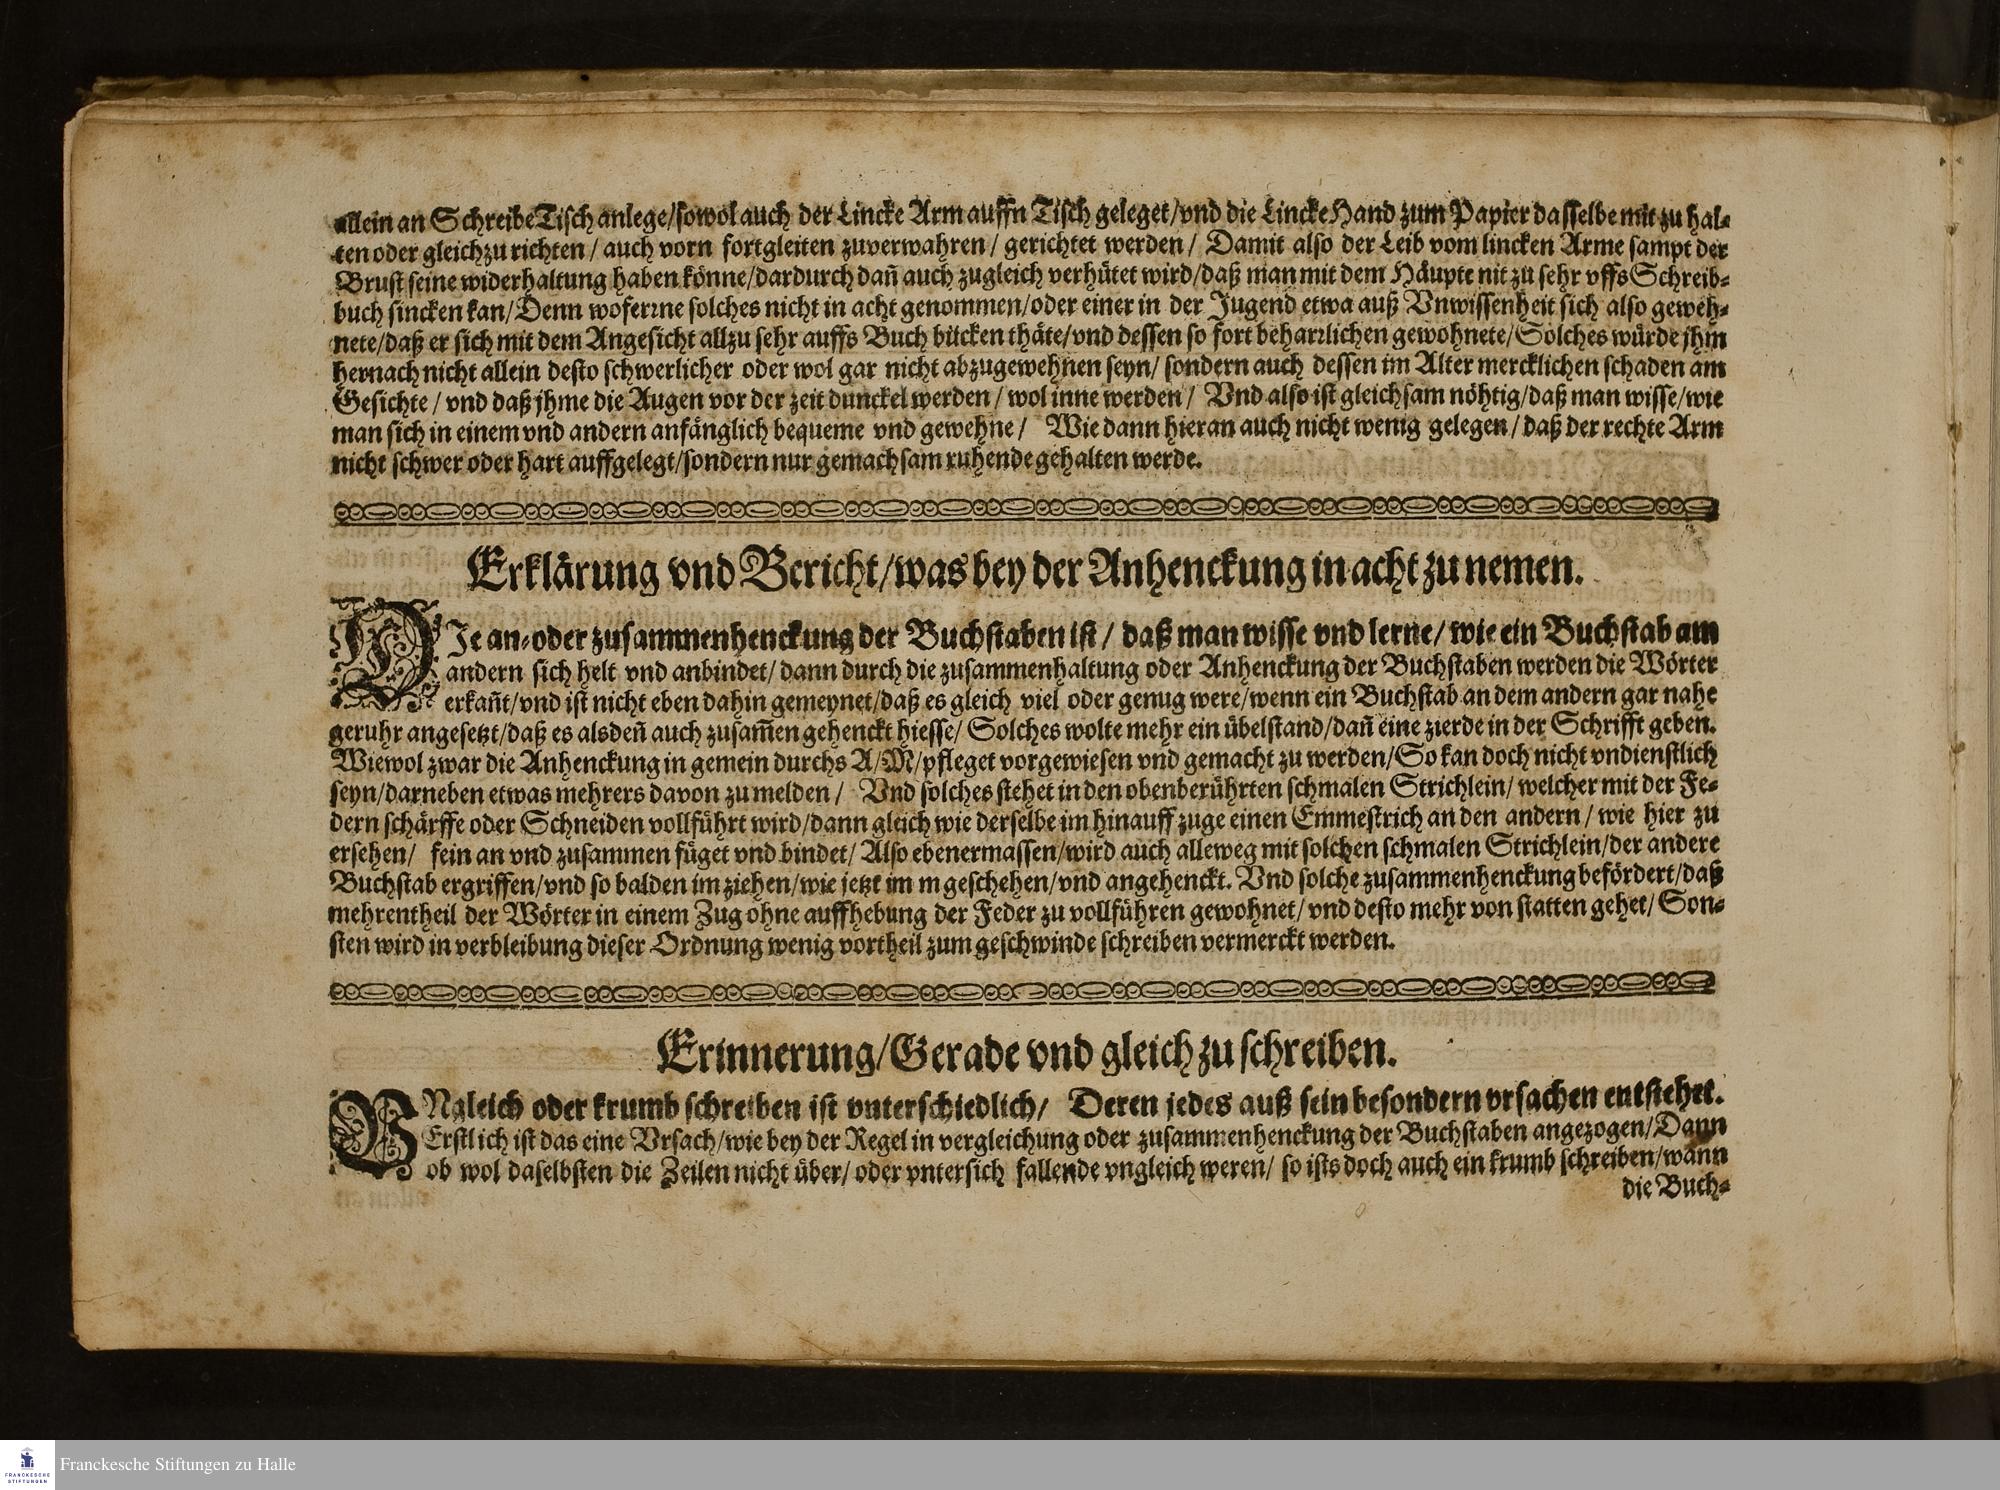 allein an SchreibeTisch anlege/sowol auch der Lincke Arm auffn Tisch geleget/vnd die Lincke Hand zum Papier dasselbe mit zu hal-
ten oder gleich zu richten / auch vorn fortgleiten zuverwahren / gerichtet werden / Damit also der Leib vom lincken Arme sampt der
Brust seine widerhaltung haben könne/dardurch dañ auch zugleich verhütet wird/daß man mit dem Häupte nit zu sehr vffs Schreib-
buch sincken kan/Denn woferrne solches nicht in acht genommen/oder einer in der Jugend etwa auß Vnwissenheit sich also geweh-
nete/daß er sich mit dem Angesicht allzu sehr auffs Buch bücken thäte/vnd dessen so fort beharrlichen gewohnete/Solches würde jhm
hernach nicht allein desto schwerlicher oder wol gar nicht abzugewehnen seyn/ sondern auch dessen im Alter mercklichen schaden am
Gesichte / vnd daß jhme die Augen vor der zeit dunckel werden / wol inne werden / Vnd also ist gleichsam nöhtig/daß man wisse/wie
man sich in einem vnd andern anfänglich bequeme vnd gewehne / Wie dann hieran auch nicht wenig gelegen / daß der rechte Arm
nicht schwer oder hart auffgelegt/sondern nur gemachsam ruhende gehalten werde.
Erklärung vnd Bericht/was bey der Anhenckung in acht zu nemen.
DIe an-oder zusammenhenckung der Buchstaben ist / daß man wisse vnd lerne/ wie ein Buchstab am
andern sich helt vnd anbindet/ dann durch die zusammenhaltung oder Anhenckung der Buchstaben werden die Wörter
erkañt/vnd ist nicht eben dahin gemeynet/daß es gleich viel oder genug were/wenn ein Buchstab an dem andern gar nahe
geruhr angesetzt/daß es alsdeñ auch zusam̃en gehenckt hiesse/ Solches wolte mehr ein übelstand/dañ eine zierde in der Schrifft geben.
Wiewol zwar die Anhenckung in gemein durchs A/M/pfleget vorgewiesen vnd gemacht zu werden/So kan doch nicht vndienstlich
seyn/darneben etwas mehrers davon zu melden / Vnd solches stehet in den obenberührten schmalen Strichlein/ welcher mit der Fe-
dern schärffe oder Schneiden vollführt wird/dann gleich wie derselbe im hinauff zuge einen Emmestrich an den andern / wie hier zu
ersehen/ fein an vnd zusammen füget vnd bindet/ Also ebenermassen/wird auch alleweg mit solchen schmalen Strichlein/der andere
Buchstab ergriffen/vnd so balden im ziehen/wie jetzt im m geschehen/vnd angehenckt. Vnd solche zusammenhenckung befördert/daß
mehrentheil der Wörter in einem Zug ohne auffhebung der Feder zu vollführen gewohnet/ vnd desto mehr von statten gehet/ Son-
sten wird in verbleibung dieser Ordnung wenig vortheil zum geschwinde schreiben vermerckt werden.
Erinnerung/Gerade vnd gleich zu schreiben.
VNgleich oder krumb schreiben ist vnterschiedlich/ Deren jedes auß sein besondern vrsachen entstehet.
Erstlich ist das eine Vrsach/wie bey der Regel in vergleichung oder zusammenhenckung der Buchstaben angezogen/Dann
ob wol daselbsten die Zeilen nicht über/ oder vntersich fallende vngleich weren/ so ists doch auch ein krumb schreiben/wann
die Buch-
Franckesche Stiftungen zu Halle
FRANCKESCHE
STIFTUNGEN